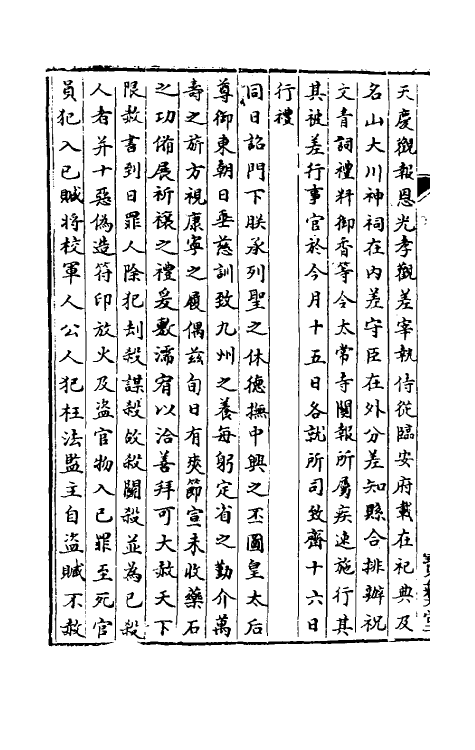 天慶觀報恩光孝觀差宰執侍從臨安府載在祀典及
名山大川神祠在內差守臣在外分差知縣合排辦祝
文青詞禮料御香等令太常寺關報所屬疾速施行其
其被差行事官於今月十五日各就所司致齋十六日
行禮
同日詔門下朕承列聖之休德撫中興之丕圖皇太后
尊御東朝日垂慈訓致九州之養每躬定省之勤介萬
壽之祈方視康寧之履偶茲旬日有爽節宣未收藥石
之功備展祈禳之禮爰敷濡宥以洽善拜可大赦天下
限赦書到日罪人除犯劫殺謀殺故殺鬬殺並為已殺
人者并十惡偽造符印放火及盜官物入己罪至死官
員犯入己贓將校軍人公人犯枉法監主自盜贓不赦